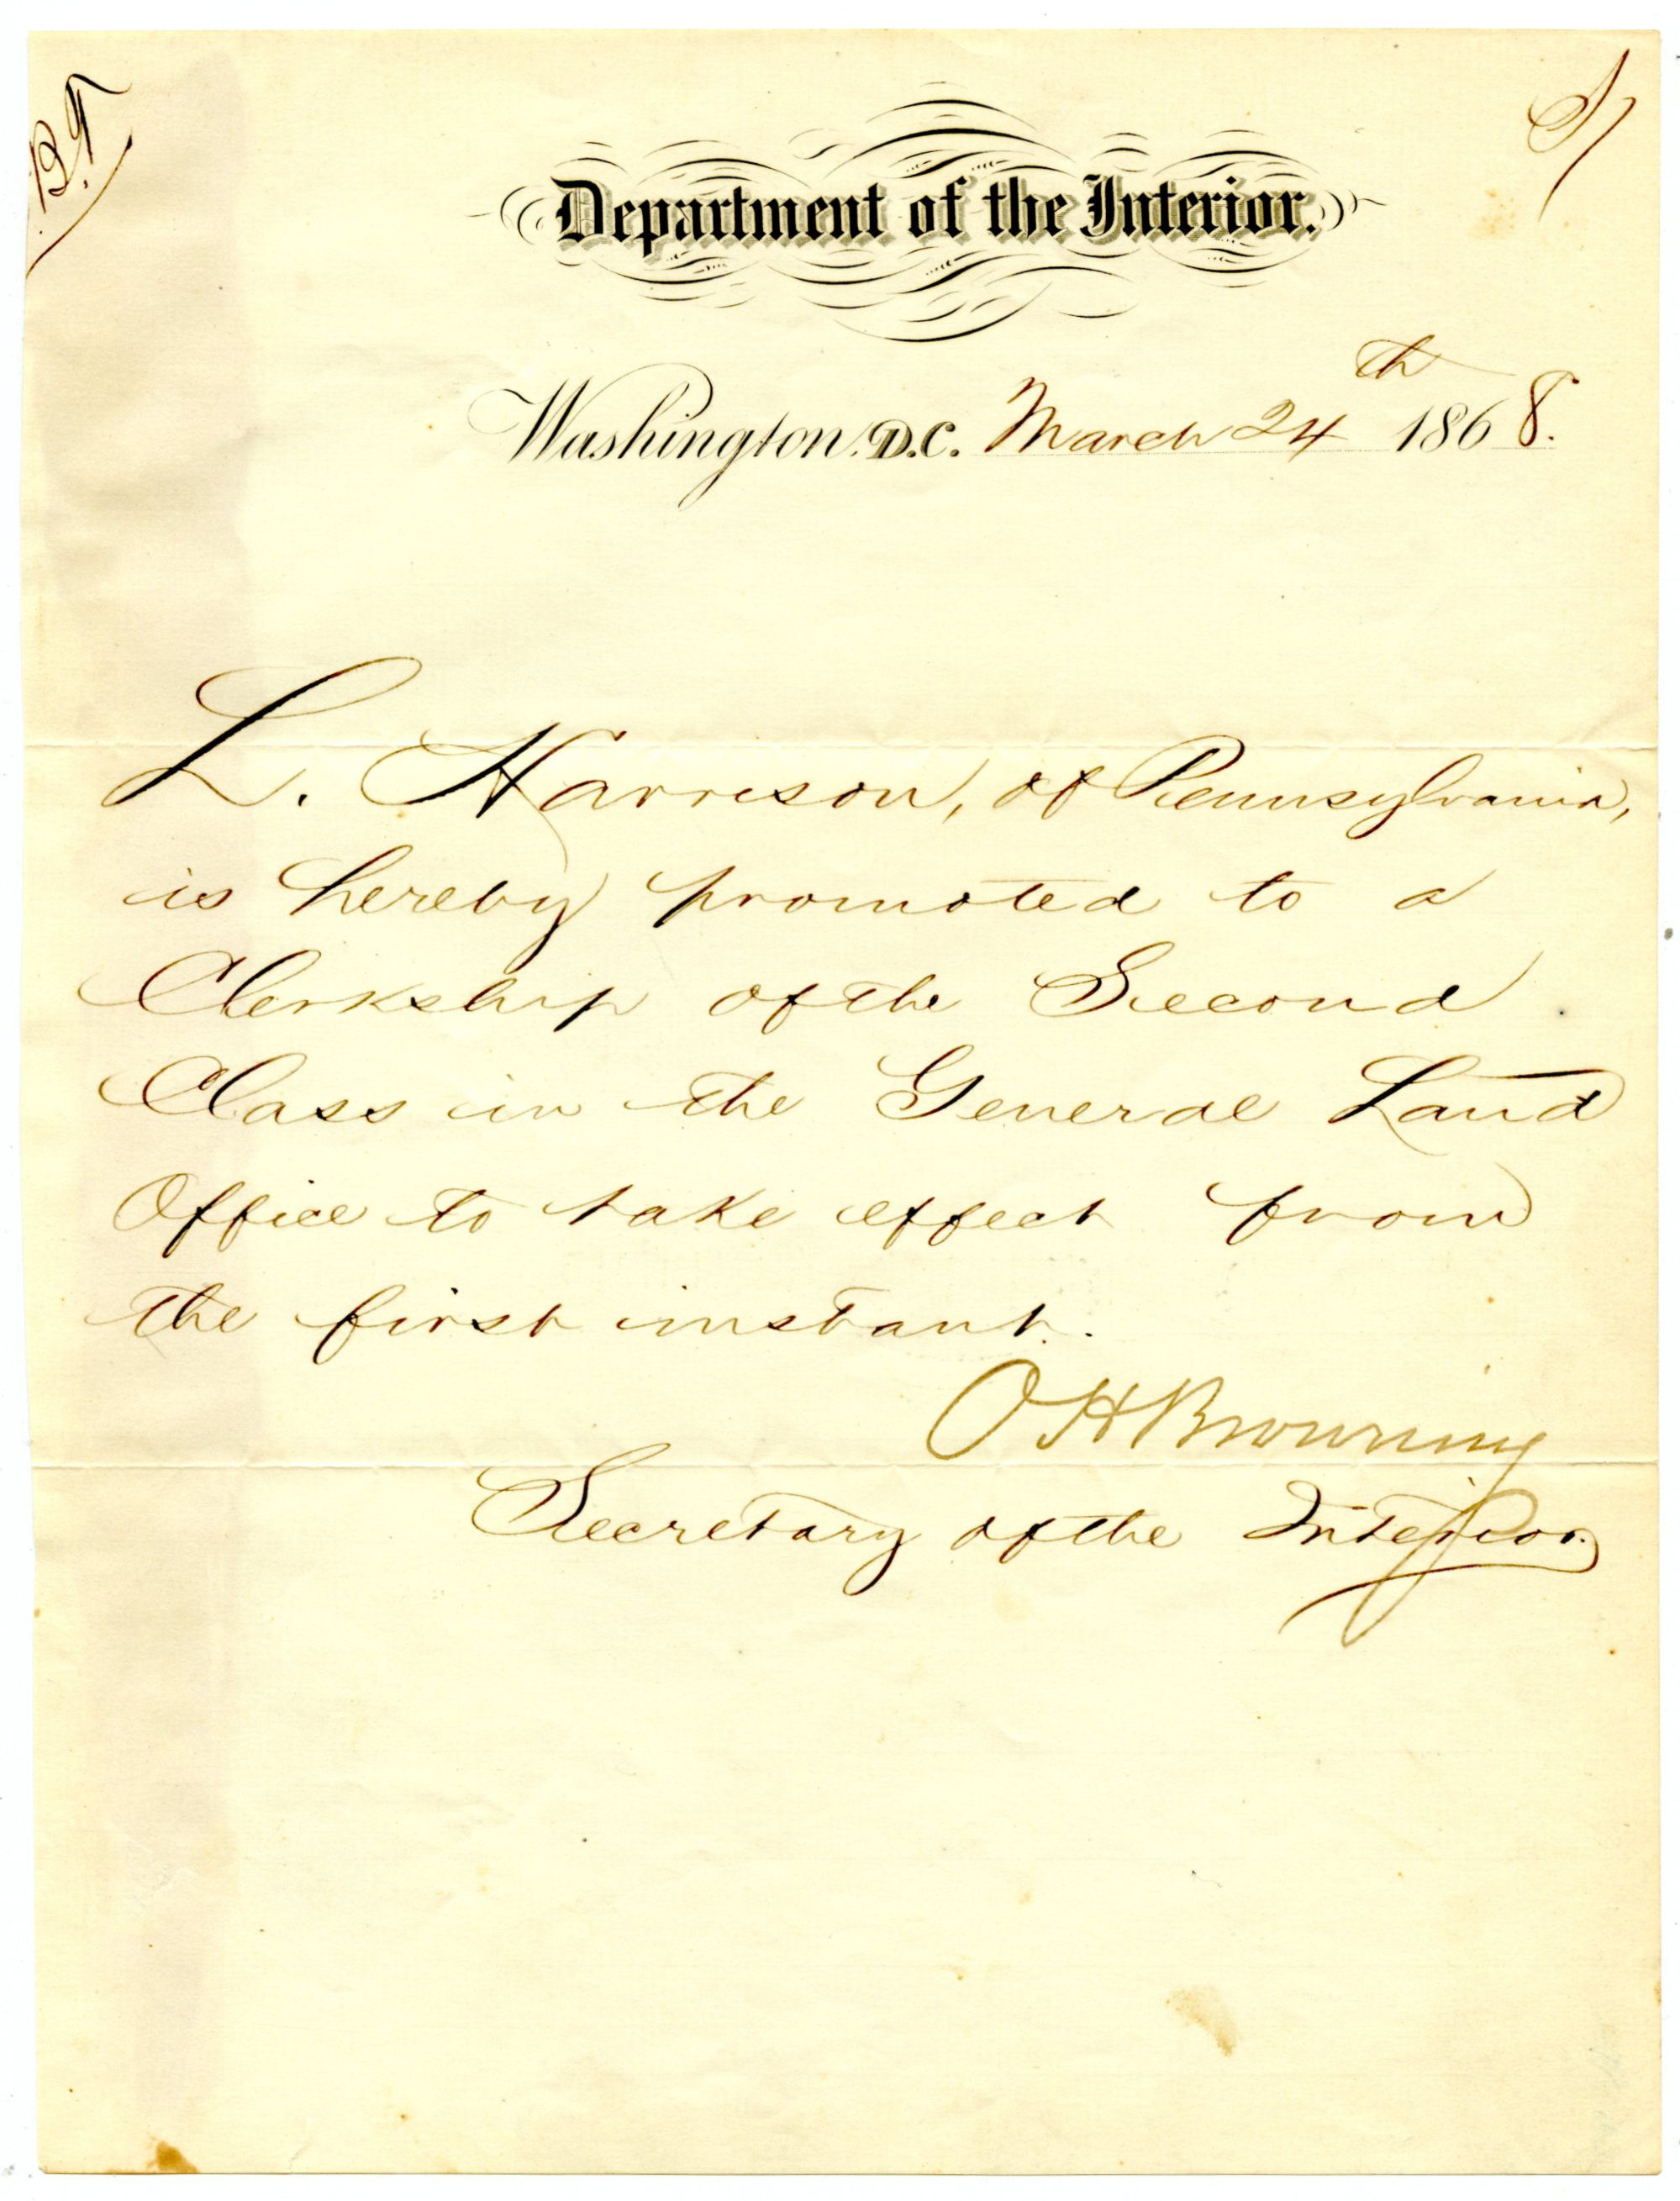 B.F.
Department of the Interior.
Washington. D.C. March 24th 1868.
L. Harrison, of Pennsylvania,
is hereby promoted to a
Clerkship of the Second
Class in the General Land
Office to take effect from
the first instant.
O H Browning
Secretary of the Interior.